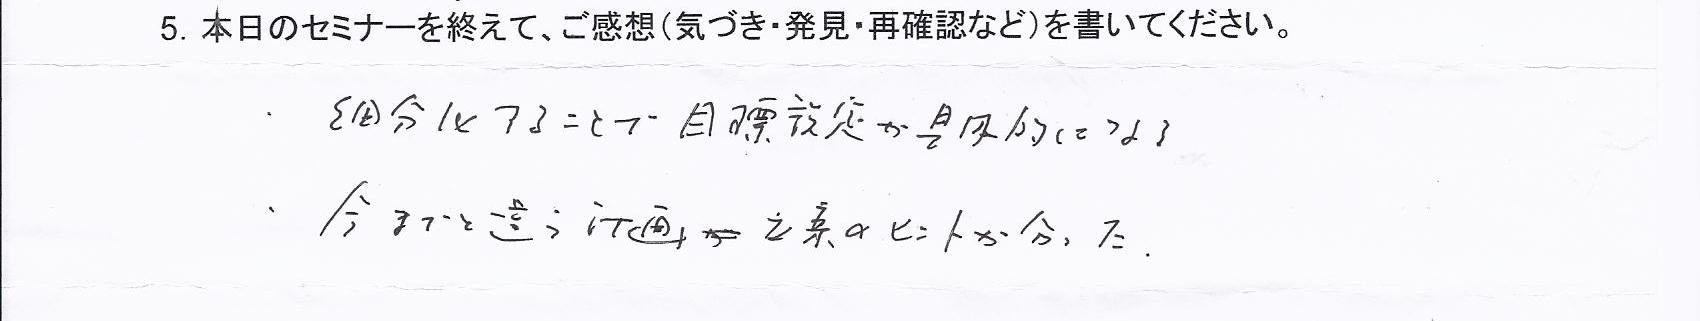 5. 本日のセミナーを終えて、ご感想（気づき・発見・再確認など）を書いてください。
・ 細分化することで目標設定が具体的になる
・ 今までと違う計画立案のヒントが分った.